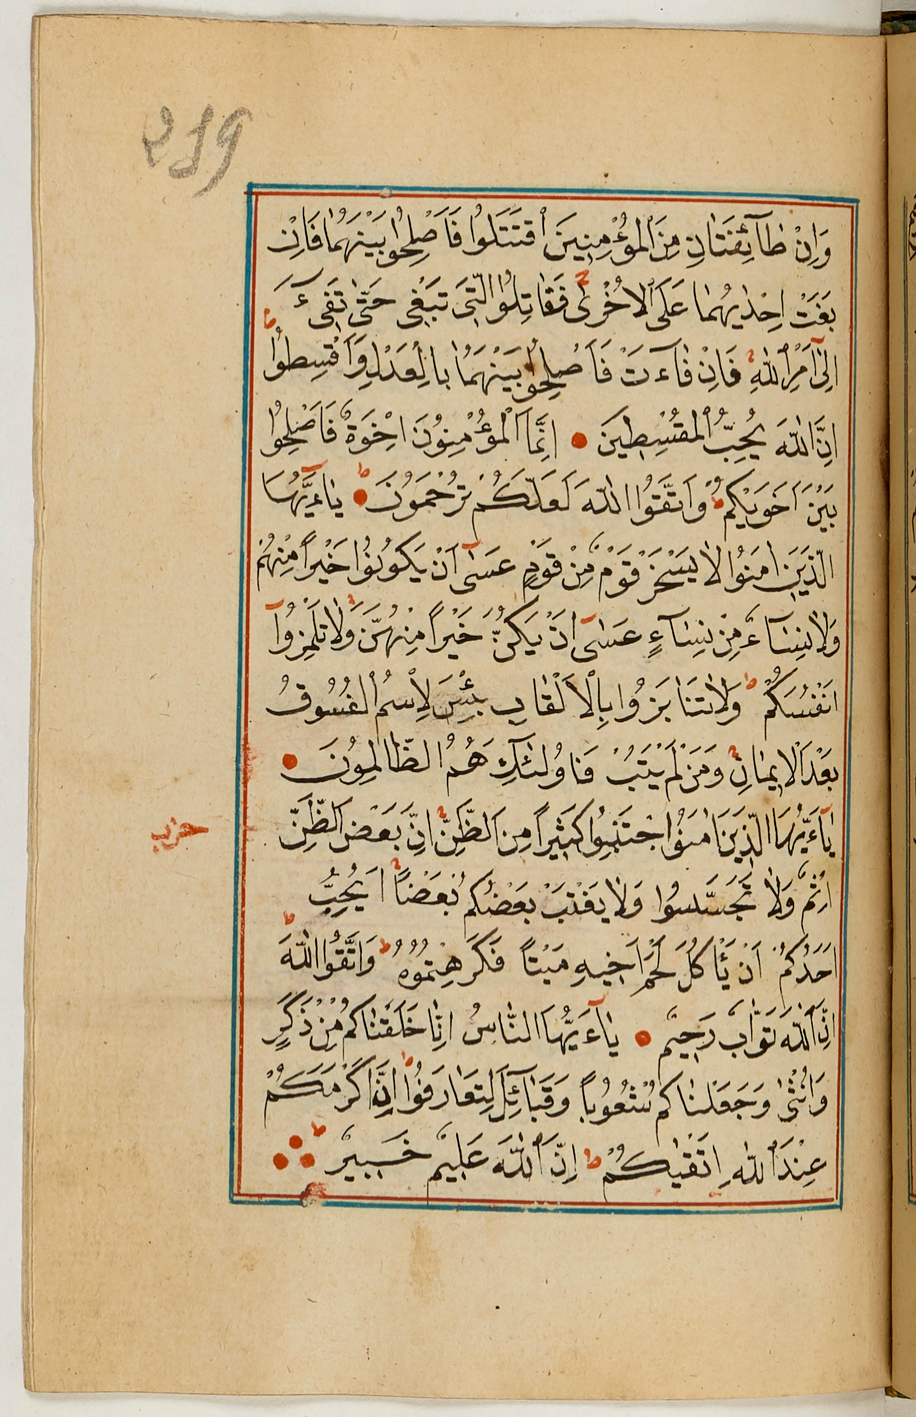 219
وَاِنْ طَآئِفَتَانِ مِنَ الْمُؤْمِنِينَ اقْتَتَلُوا فَاَصْلِحُوا بَيْنَهُمَا فَاِنْ
بَغَتْ اِحْدٰيهُمَا عَلَى الْاُخْرٰى فَقَاتِلُوا الَّتِى تَبْغِى حَتّٰى تَفِىٓءَ
اِلٰٓى اَمْرِ اللّٰهِ فَاِنْ فَآءَتْ فَاَصْلِحُوا بَيْنَهُمَا بِالْعَدْلِ وَاَقْسِطُوا
اِنَّ اللّٰهَ يُحِبُّ الْمُقْسِطِينَ اِنَّمَا الْمُؤْمِنُونَ اِخْوَةٌ فَاَصْلِحُوا
بَيْنَ اَخَوَيْكُمْ وَاتَّقُوا اللّٰهَ لَعَلَّكُمْ تُرْحَمُونَ يَآءَيُّهَا
الَّذِينَ اٰمَنُوا لَا يَسْخَرْ قَوْمٌ مِنْ قَوْمٍ عَسٰٓى اَنْ يَكُونُوا خَيْرًا مِنْهُمْ
وَلَا نِسَآءٌ مِنْ نِسَآءٍ عَسٰٓى اَنْ يَكُنَّ خَيْرًا مِنْهُنَّ وَلَا تَلْمِزُوٓا
اَنْفُسَكُمْ وَلَا تَنَابَزُوا بِالْاَلْقَابِ بِئْسَ لِاسْمُ الْفُسُوقُ
بَعْدَ الْاِيمَانِ وَمَنْ لَمْ يَتُبْ فَاُولٰٓئِكَ هُمُ الظَّالِمُونَ
يَآءَيُّهَا الَّذِينَ اٰمَنُوا اجْتَنِبُوا كَثِيرًا مِنَ الظَّنِّ اِنَّ بَعْضَ الظَّنِّ
حزب
اِثْمٌ وَلَا تَجَسَّسُوا وَلَا يَغْتَبْ بَعْضُكُمْ بَعْضًا اَيُحِبُّ
اَحَدُكُمْ اَنْ يَاْكُلَ لَحْمَ اَخِيهِ مَيْتًا فَكَرِهْتُمُوهُ وَاتَّقُوا اللّٰهَ
اِنَّ اللّٰهَ تَوَّابٌ رَحِيمٌ يَآءَيُّهَا النَّاسُ اِنَّا خَلَقْنَاكُمْ مِنْ ذَكَرٍ
وَاُنْثٰى وَجَعَلْنَاكُمْ شُعُوبًا وَقَبَآئِلَ لِتَعَارَفُوا اِنَّ اَكْرَمَكُمْ
عِنْدَ اللّٰهِ اَتْقٰيكُمْ اِنَّ اللّٰهَ عَلِيمٌ خَبِيرٌ